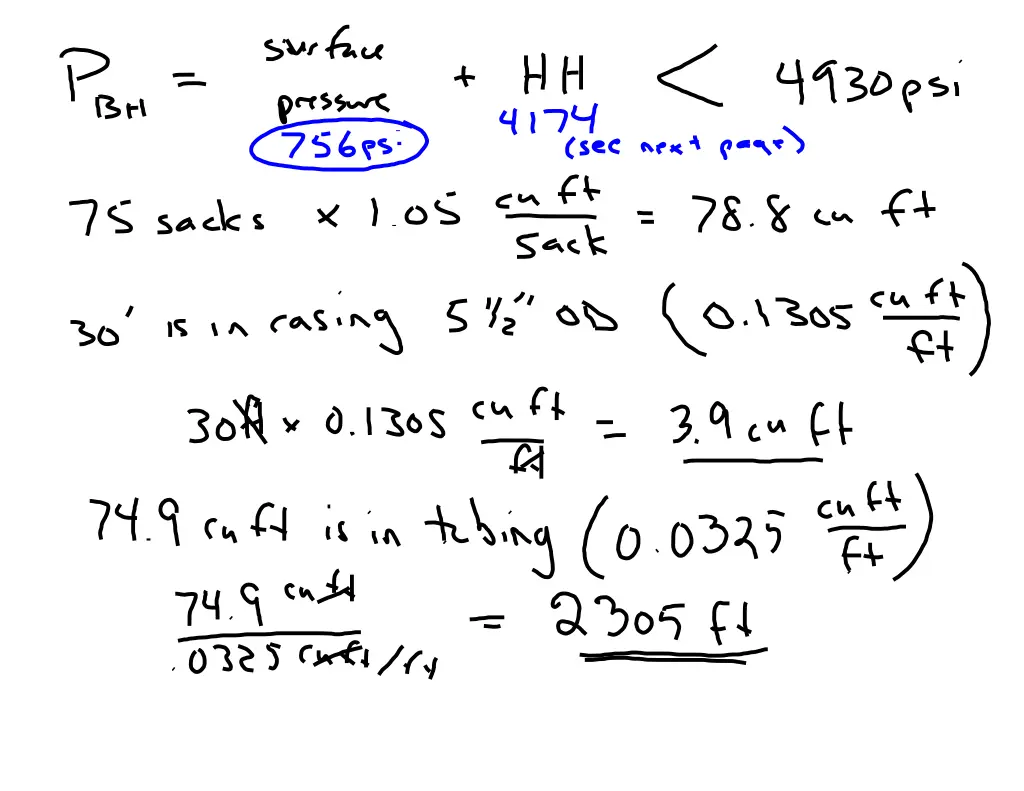 P_BH = surface pressure + HH < 4930 psi
756 psi 4174 (see next page)
75 sacks x 1.05 cu ft / sack = 78.8 cu ft
30' is in casing 5 1/2" OD (0.1305 cu ft / ft)
30 ft x 0.1305 cu ft / ft = 3.9 cu ft
74.9 cu ft is in tubing (0.0325 cu ft / ft)
74.9 cu ft / .0325 cu ft/ft = 2305 ft